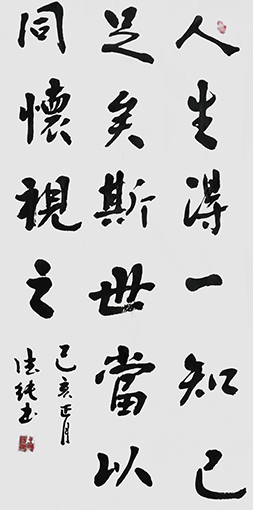 人生得一知己
足矣斯世當以
同懷視之
己亥正月
德純书